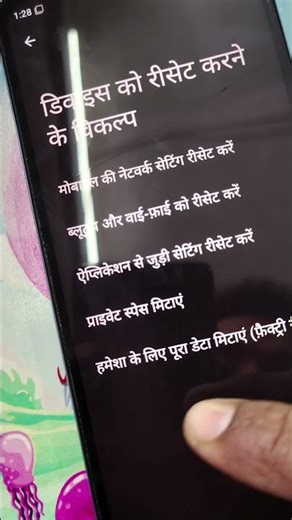 1:28
डिवाइस को रीसेट करने
के विकल्प
मोबाइल की नेटवर्क सेटिंग रीसेट करें
ब्लूटूथ और वाई-फ़ाई को रीसेट करें
ऐप्लिकेशन से जुड़ी सेटिंग रीसेट करें
प्राइवेट स्पेस मिटाएं
हमेशा के लिए पूरा डेटा मिटाएं (फ़ैक्ट्री